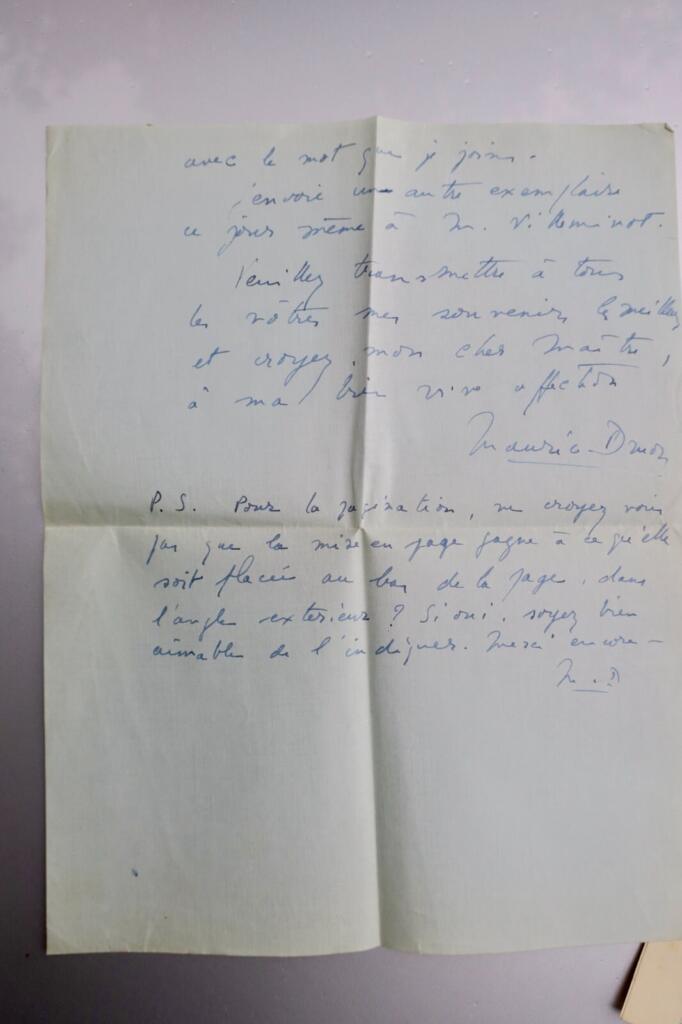 avec le mot que je joins.
j'envoie un autre exemplaire
ce jour même à M. Villeminot.
Veuillez transmettre à tous
les vôtres mes souvenirs les meilleurs
et croyez, mon cher Maître,
à ma bien vive affection
Maurice-Druon
P.S. Pour la pagination, ne croyez vous
pas que la mise en page gagne à ce qu'elle
soit placée au bas de la page, dans
l'angle extérieur ? Si oui, soyez bien
aimable de l'indiquer. Merci encore –
M. D